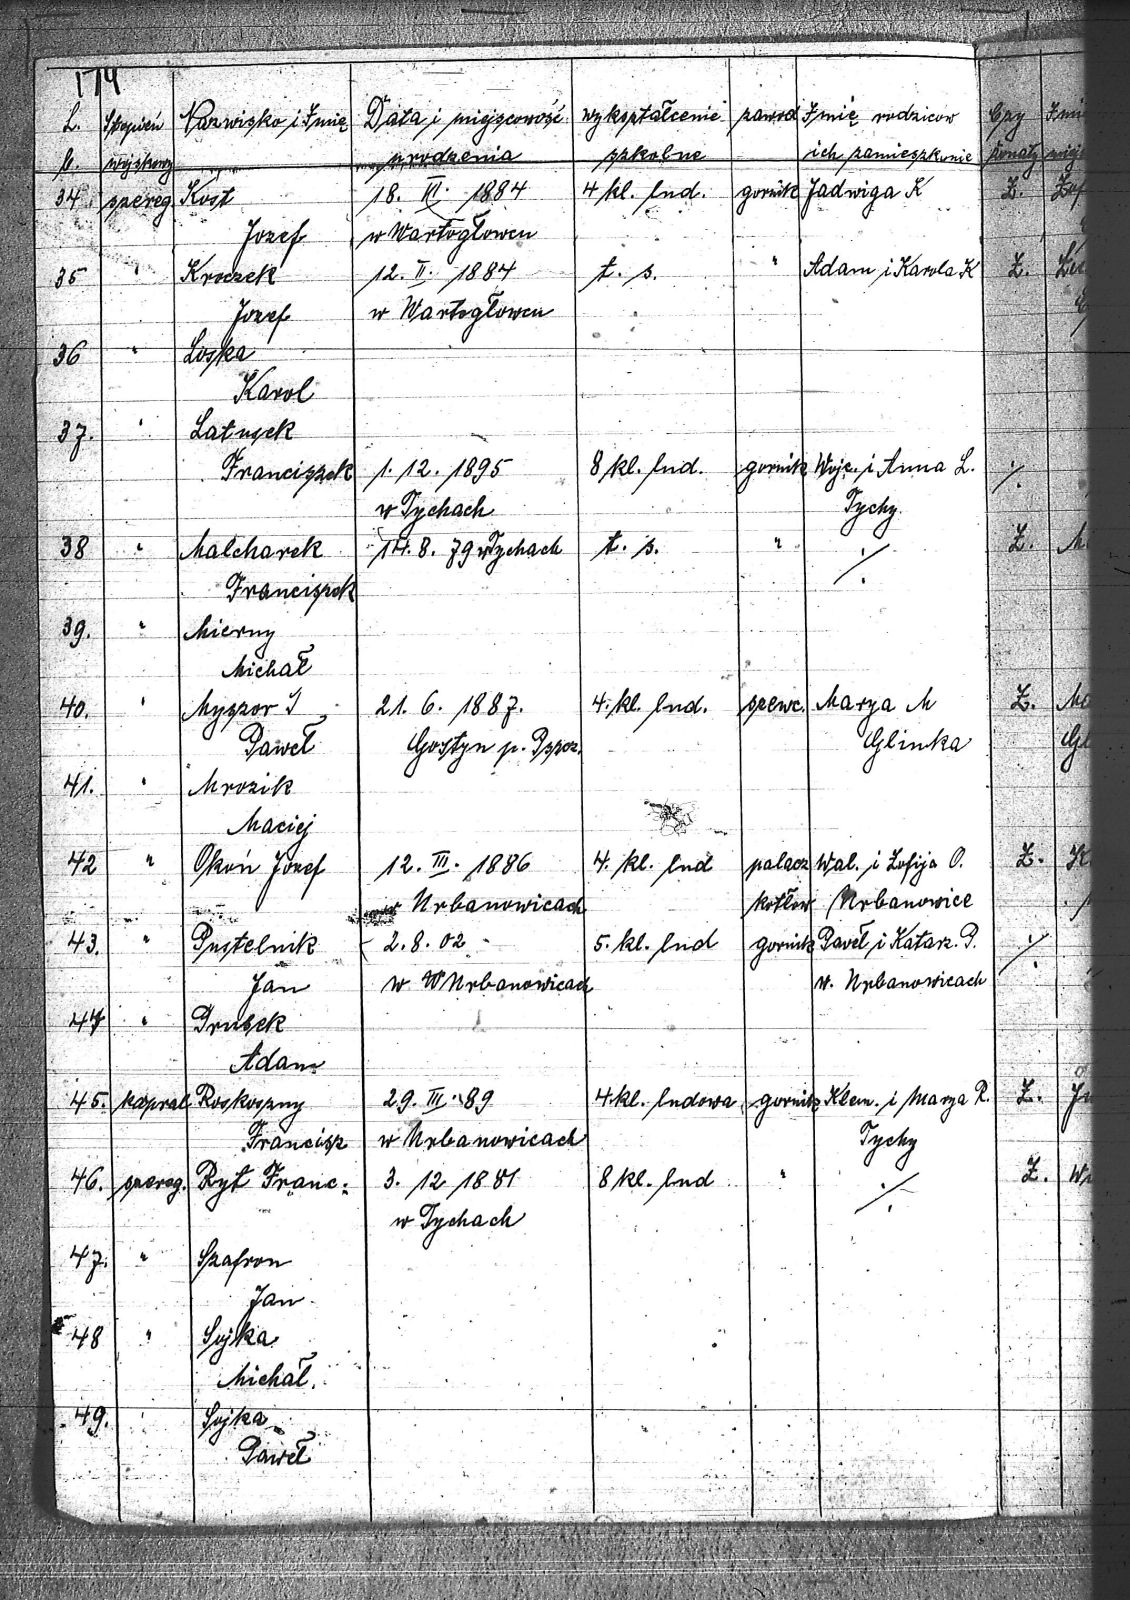 174
L. Stopień Nazwisko i Imię Data i miejscowość wykształcenie zawod Imię rodzicow Czy
b. wojskowy urodzenia szkolne ich zamieszkanie żonaty
34. szereg Kost 18. III. 1884 4 kl. lud. gornik Jadwiga K Ż.
Jozef w Wartogłowcu
35 " Kroczek 12. II. 1884 t. s. " Adam i Karola K Ż.
Jozef w Wartogłowcu
36 " Loska
Karol
37. " Latusek
Franciszek 1. 12. 1895 8 kl. lud. gornik Wojc. i Anna L. ./.
w Tychach Tychy
38 " Malcharek 14. 8. 79 w Tychach t. s. " ./. Ż.
Franciszek
39. " Mierny
Michał
40. " Myszor I 21. 6. 1887. 4. kl. lud. szewc. Marya M Ż.
Paweł Gostyn p. Pszcz. Glinka
41. " Mrozik
Maciej
42 " Okoń Jozef 12. III. 1886 4. kl. lud palacz Wal. i Zofija O. Ż.
w Urbanowicach kotłow Urbanowice
43. " Pustelnik 2. 8. 02 5. kl. lud gornik Paweł i Katarz. P. ./.
Jan w W Urbanowicach w. Urbanowicach
44 " Prusek
Adam
45. kapral Roskoszny 29. III. 89 4 kl. ludowa gornik Klem. i Marya R. Ż.
Francisz w Urbanowicach Tychy
46. szereg. Ryt Franc. 3. 12 1881 8 kl. lud " ./. Ż.
w Tychach
47. " Szafron
Jan
48 " Sojka
Michał.
49. " Sojka
Paweł